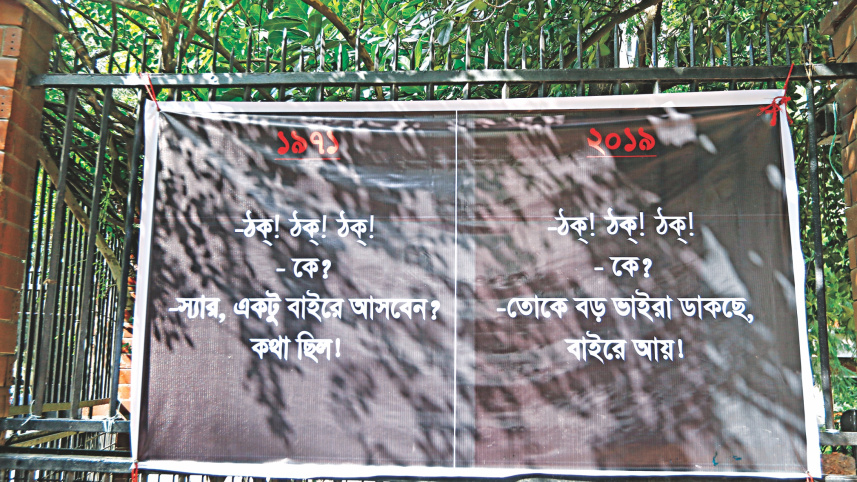 ১৯৭১
-ঠক্! ঠক্! ঠক্!
- কে?
-স্যার, একটু বাইরে আসবেন?
কথা ছিল!
২০১৯
-ঠক্! ঠক্! ঠক্!
- কে?
-তোকে বড় ভাইরা ডাকছে,
বাইরে আয়!